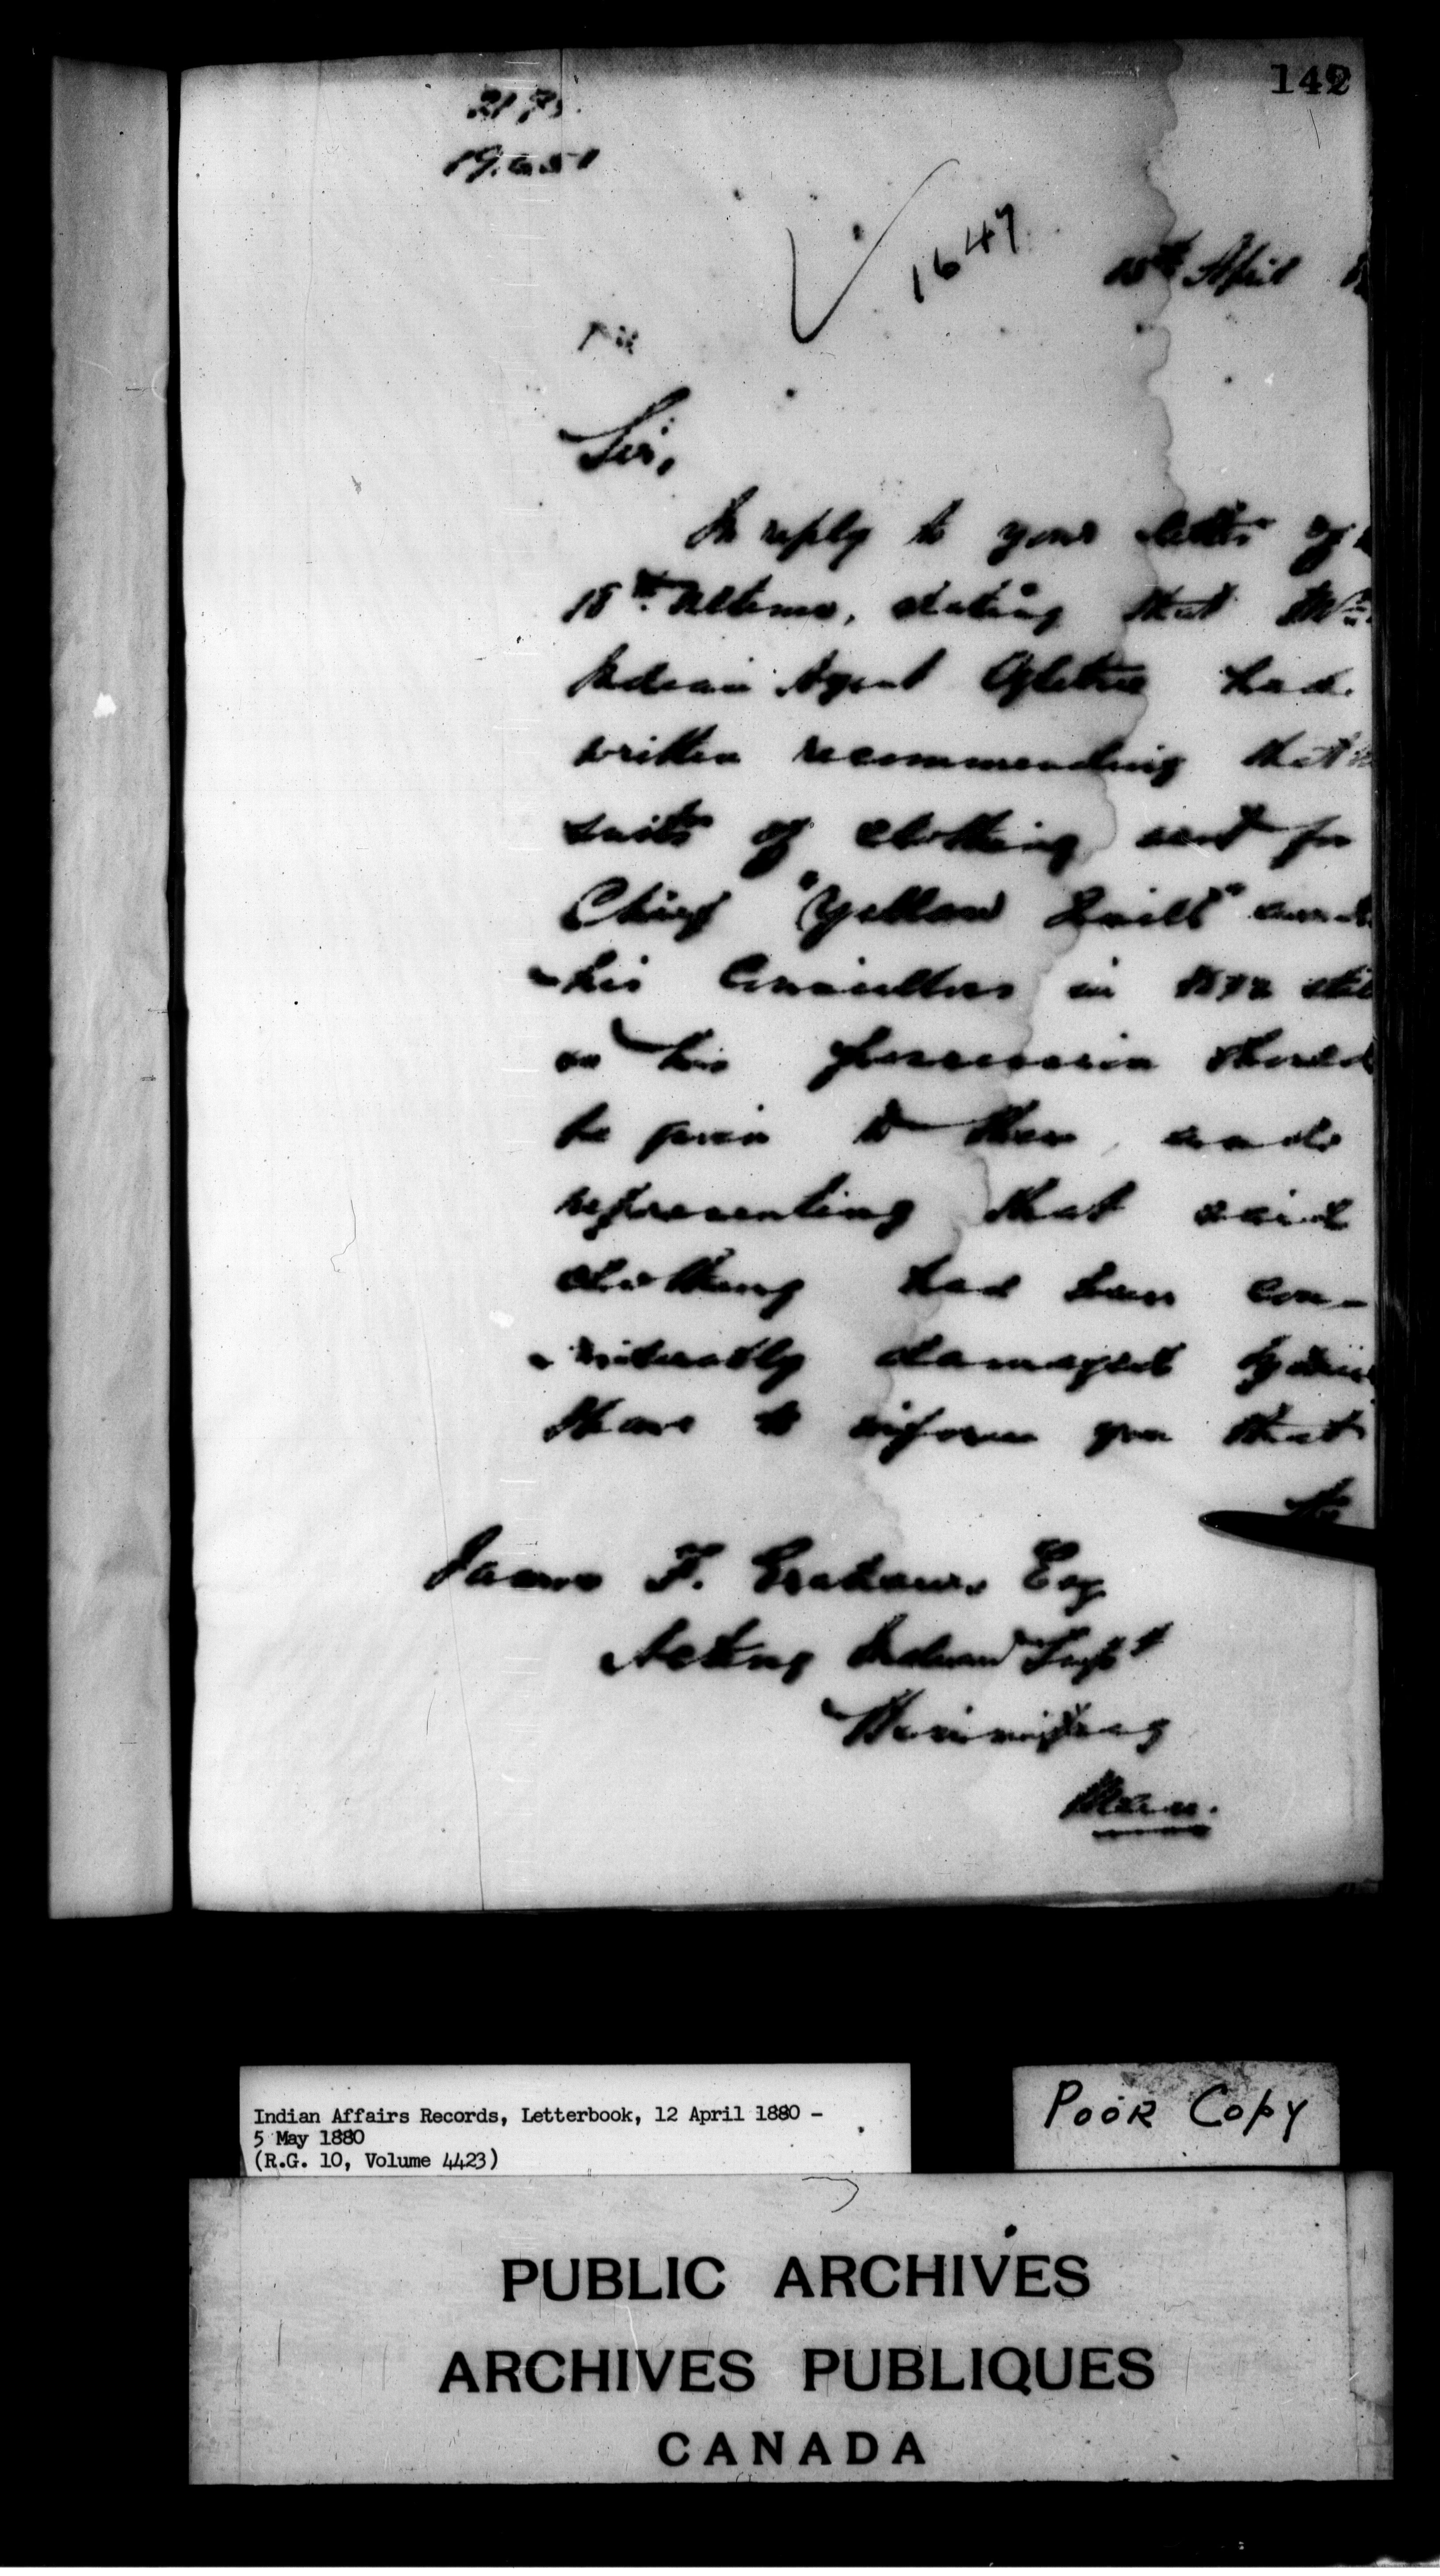 142
1647
April
Sir,
In reply to your letter of
18th Ultimo, stating that Mr.
Indian Agent Ogletree had
written recommending that
suits of clothing sent for
Chief "Yellow Quill" and
his Councillors in
in his possession should
be given to them and
representing that said
clothing had been con-
siderably damaged by
I have to inform you that
the
James F. Graham, Esq
Acting Indian Supt
Winnipeg
Man.
Indian Affairs Records, Letterbook, 12 April 1880 -
5 May 1880
(R.G. 10, Volume 4423)
POOR COPY
PUBLIC ARCHIVES
ARCHIVES PUBLIQUES
CANADA